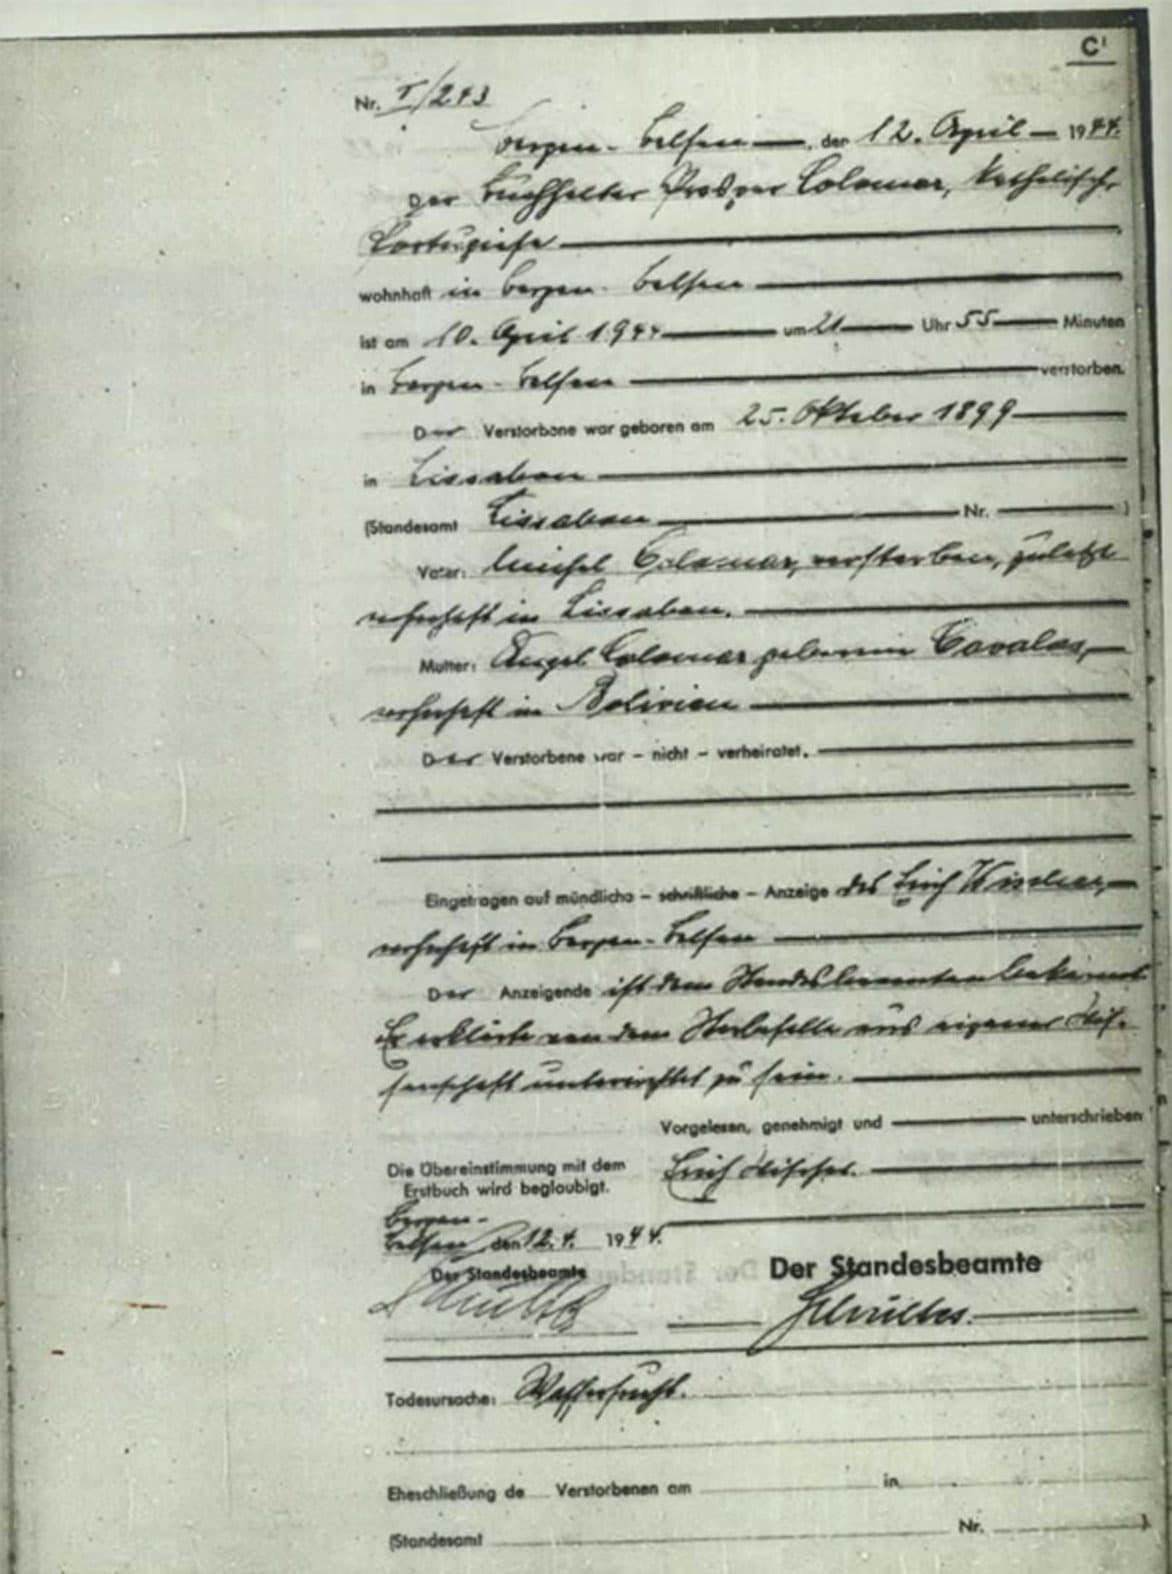 C¹
Nr. I/243
Bergen-Belsen, den 12. April 1944.
Der Buchhalter Prosper Colomar, katholisch,
Portugiese
wohnhaft in Bergen-Belsen
ist am 10. April 1944 um 21 Uhr 55 Minuten
in Bergen-Belsen verstorben.
Der Verstorbene war geboren am 25. Oktober 1899
in Lissabon
(Standesamt Lissabon Nr. )
Vater: Colomar, verstorben, zuletzt
wohnhaft in Lissabon.
Mutter: Angel Colomar geborene Cavalas,
wohnhaft in Bolivien
Der Verstorbene war – nicht – verheiratet.
Eingetragen auf mündliche – schriftliche – Anzeige des Erich
wohnhaft in Bergen-Belsen
Der Anzeigende ist dem Standesbeamten bekannt
Er erklärte von dem Sterbefalle aus eigener Wis-
senschaft unterrichtet zu sein.
Vorgelesen, genehmigt und unterschrieben
Die Übereinstimmung mit dem
Erstbuch wird beglaubigt.
Erich
Bergen-
Belsen, den 12.4. 1944.
Der Standesbeamte
Der Standesbeamte
Todesursache: Wassersucht.
Eheschließung de Verstorbenen am in
(Standesamt Nr. )